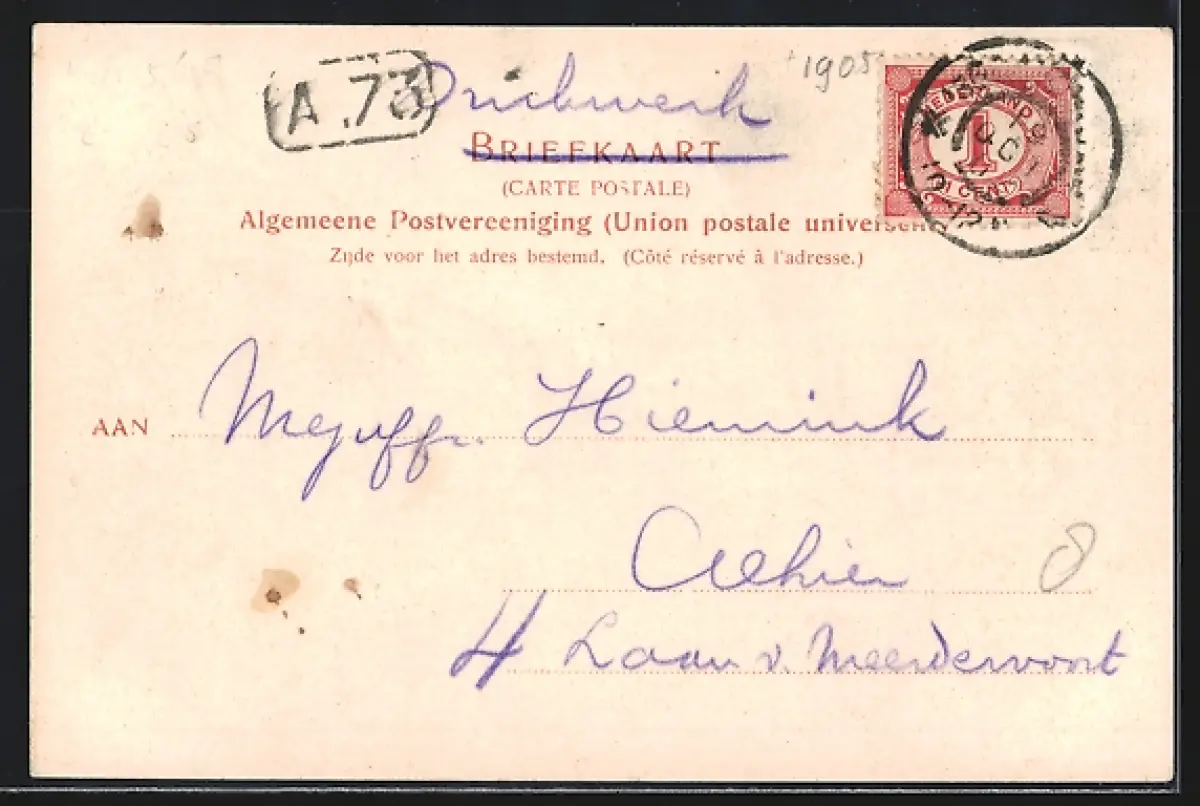 A.73
Drukwerk
1905
BRIEFKAART
(CARTE POSTALE)
Algemeene Postvereeniging (Union postale univers
Zijde voor het adres bestemd. (Côté réservé à l'adresse.)
NEDERLAND
1
CENT
AAN Mejuffr. Hiemink
Alhier
8
4 Laan v. Meerdervoort